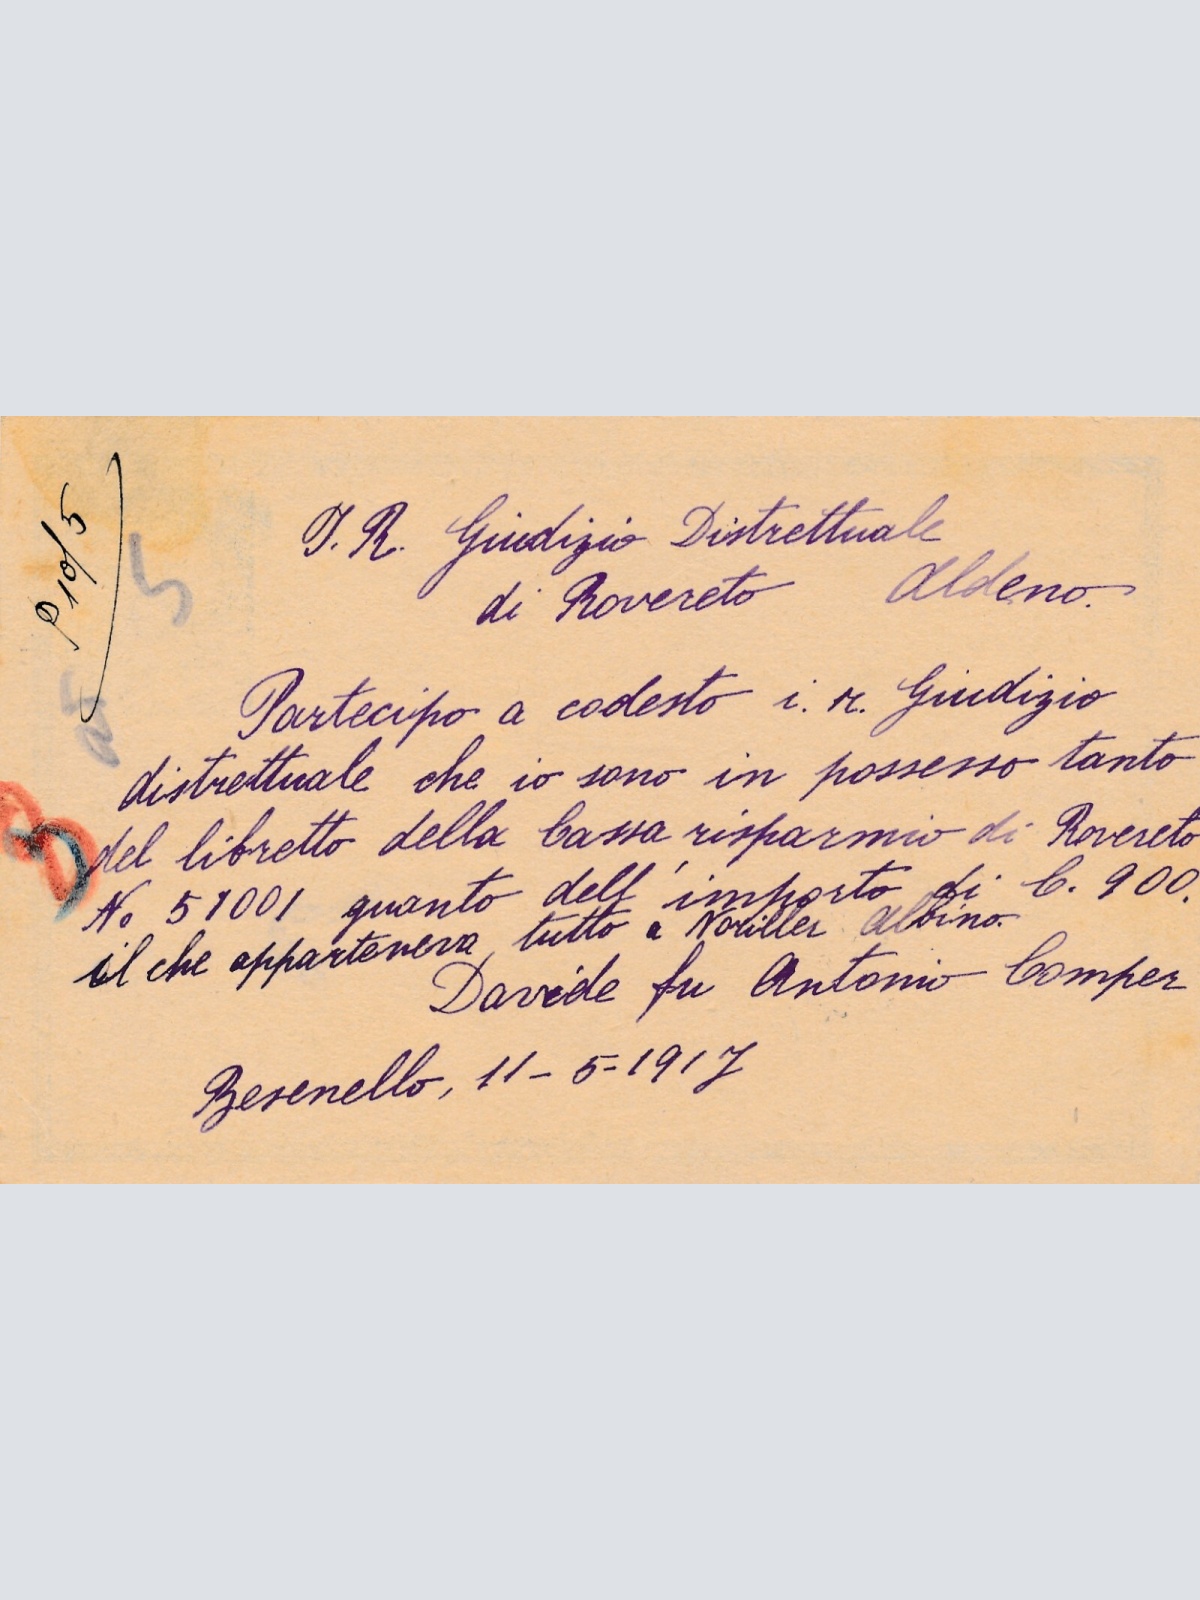 I. R. Giudizio Distrettuale
di Rovereto Aldeno.
Partecipo a codesto i. r. Giudizio
distrettuale che io sono in possesso tanto
del libretto della Cassa risparmio di Rovereto
No 51001 quanto dell'importo di C. 900.
il che apparteneva tutto a Noriller Albino.
Davide fu Antonio Comper
Besenello, 11-5-1917
P 10/5
5